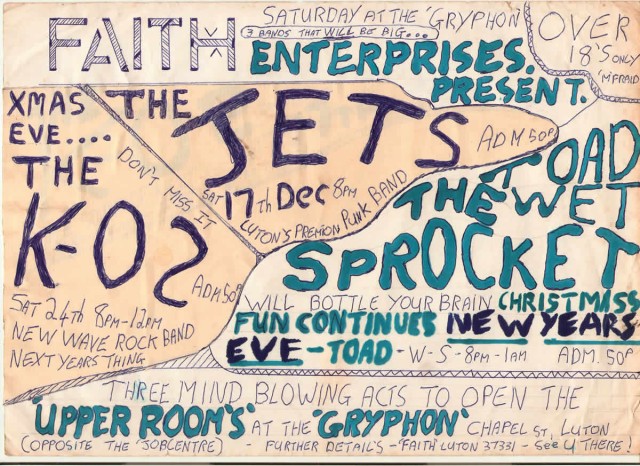 FAITH
SATURDAY AT THE 'GRYPHON
3 BANDS THAT WILL BE BIG...
ENTERPRISES.
PRESENT.
OVER
18'S ONLY
'M'FRAID
XMAS
EVE....
THE
K-OS
ADM 50P
SAT 24th 8PM-12PM
NEW WAVE ROCK BAND
NEXT YEARS THING
DON'T MISS IT
THE
JETS
ADM 50P
SAT 17th Dec 8PM
LUTON'S PREMION PUNK BAND
TOAD
THE WET
SPROCKET
WILL BOTTLE YOUR BRAIN CHRISTMISS
FUN CONTINUES NEW YEARS
EVE - TOAD - W - S - 8PM - 1AM ADM. 50P
THREE MIND BLOWING ACTS TO OPEN THE
'UPPER ROOM'S' AT THE 'GRYPHON' CHAPEL ST, LUTON
(OPPOSITE THE 'JOBCENTRE) - FURTHER DETAIL'S - 'FAITH' LUTON 37331 - See U THERE!